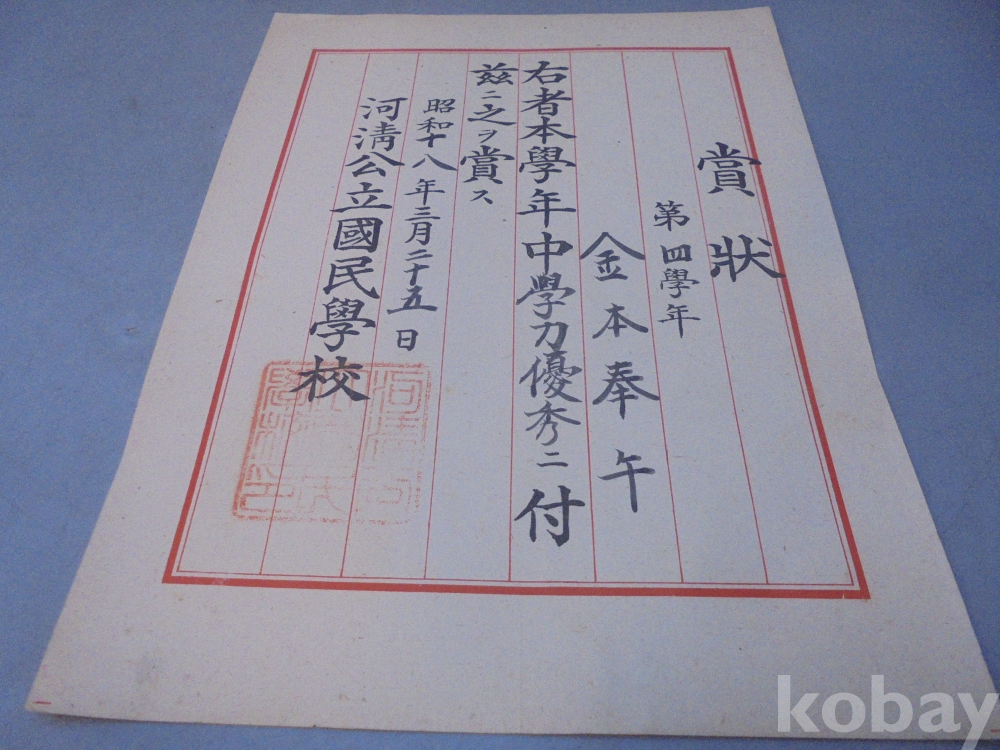 賞狀
第四學年
金本奉午
右者本學年中學力優秀ニ付
茲ニ之ヲ賞ス
昭和十八年三月二十五日
河淸公立國民學校
kobay